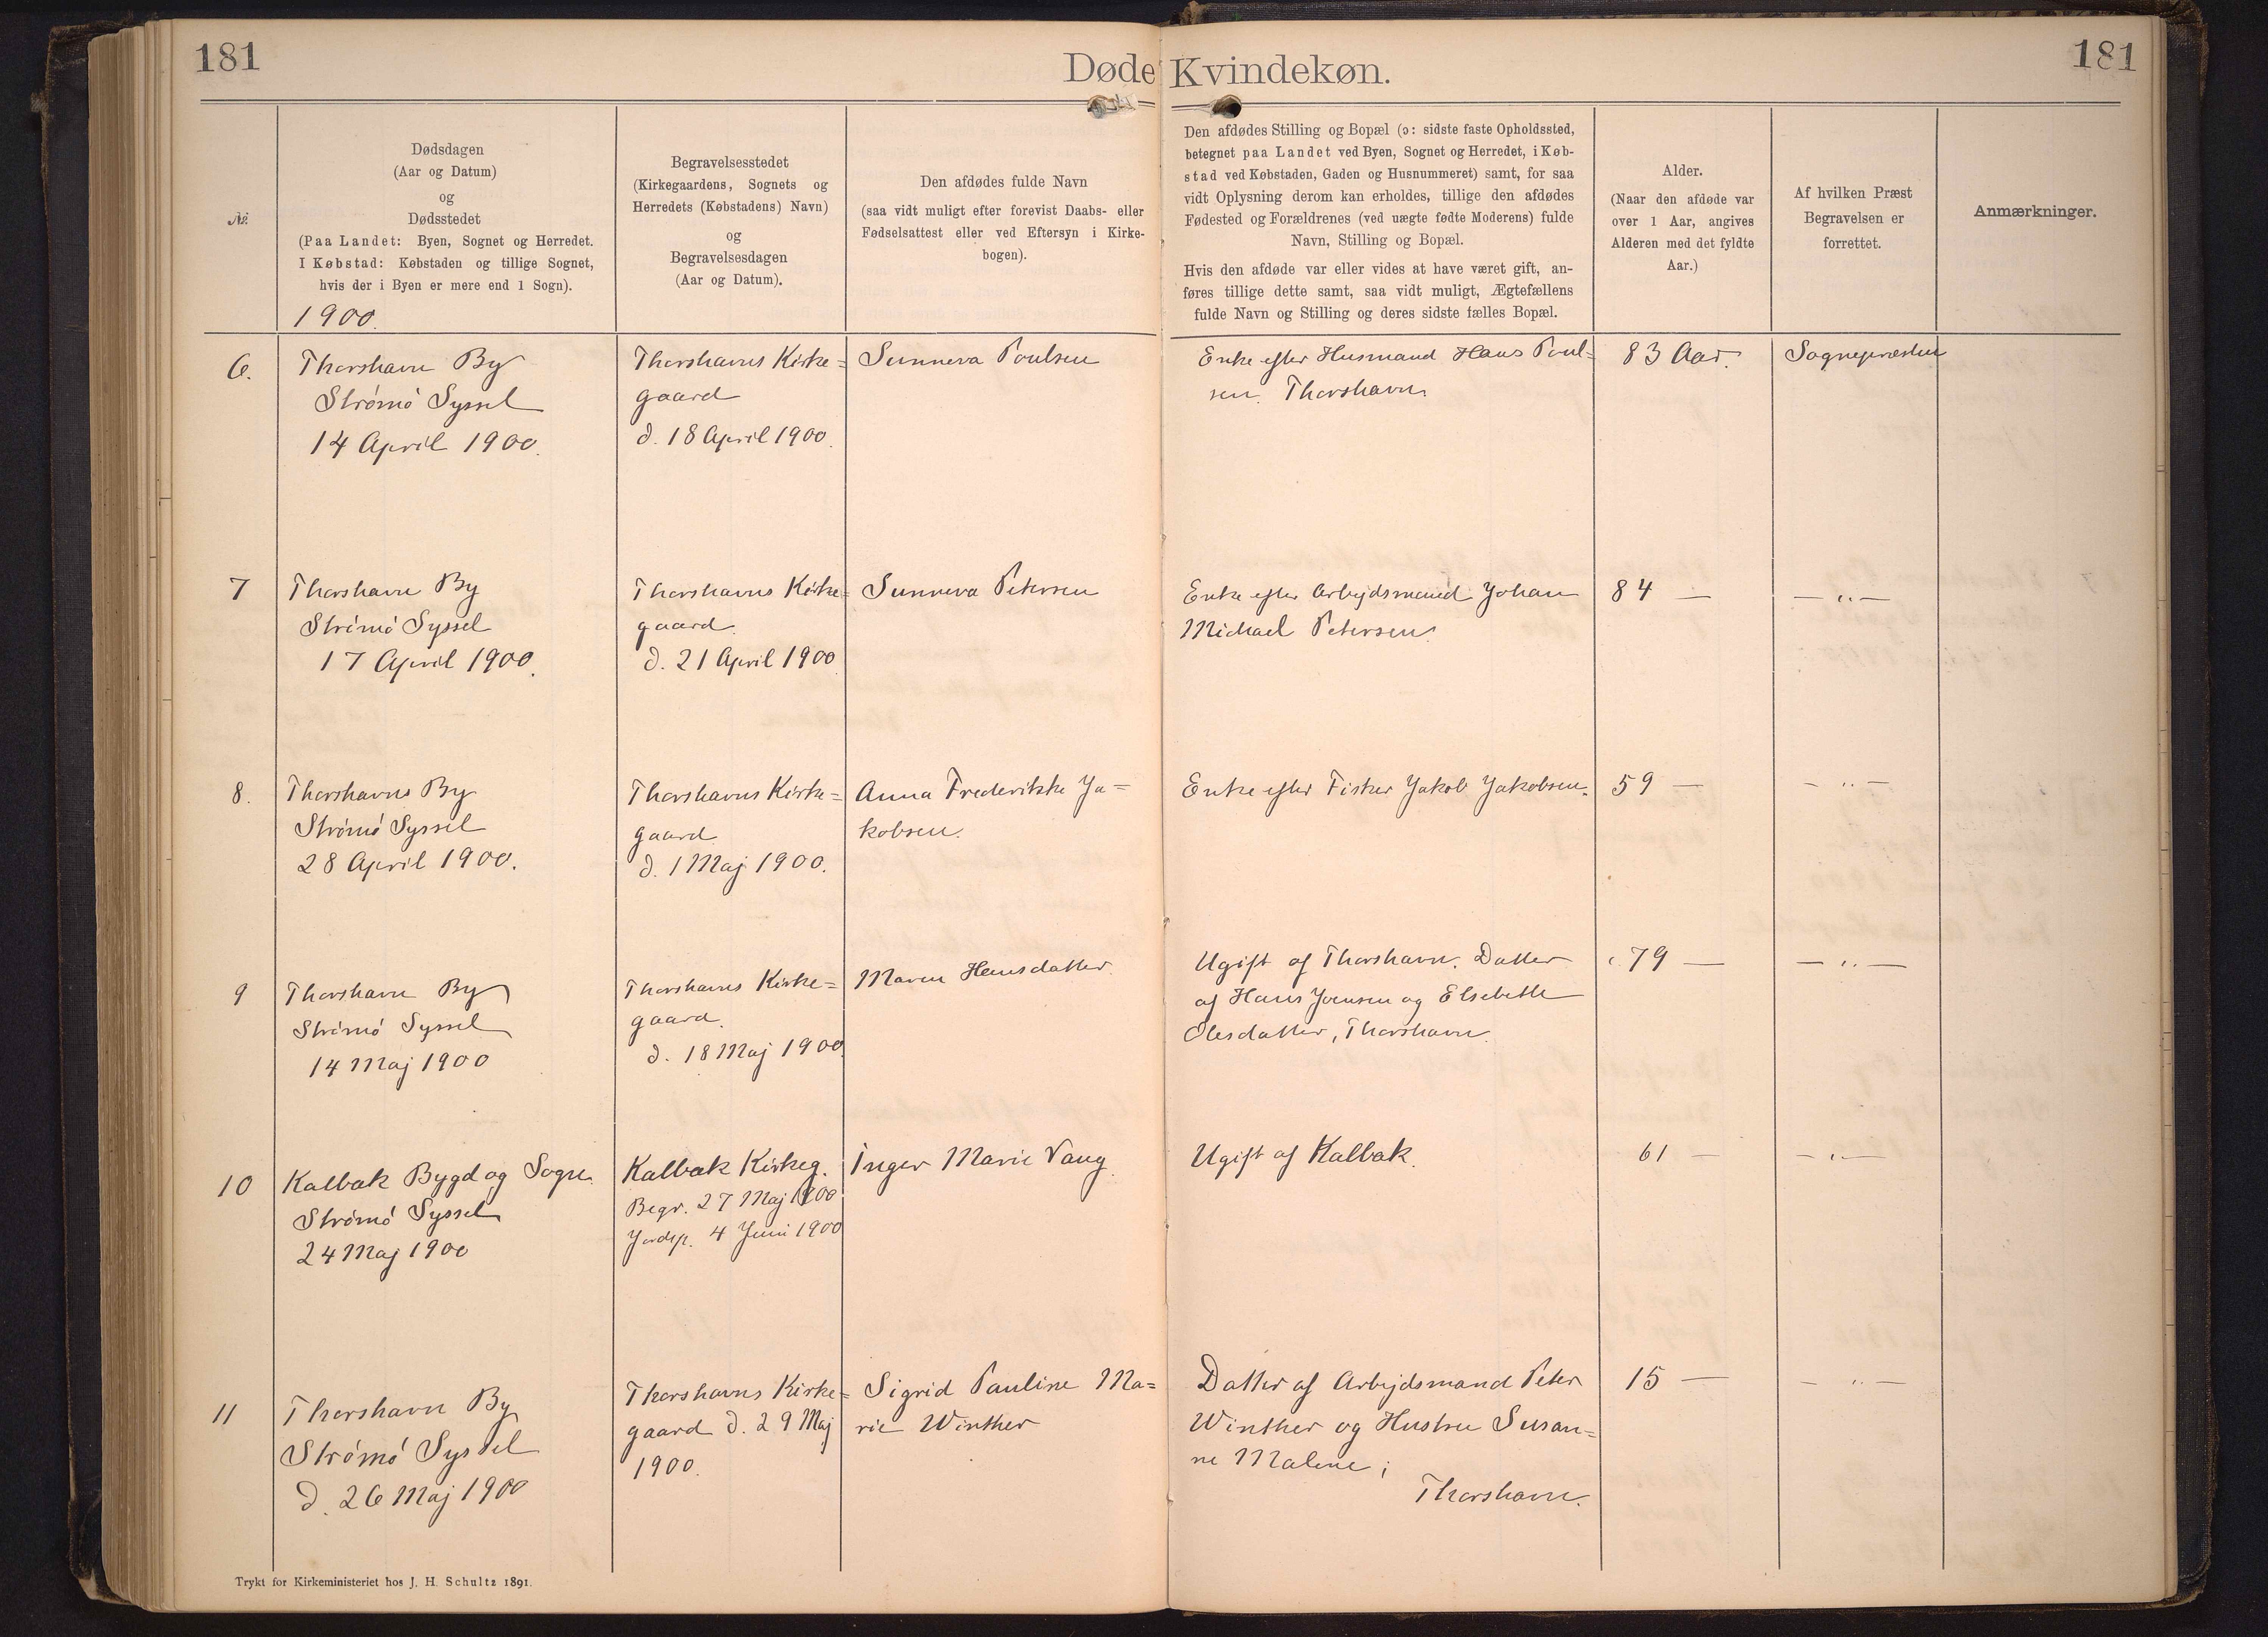 181
Døde Kvindekøn.
181
№
Dødsdagen
(Aar og Datum)
og
Dødsstedet
(Paa Landet: Byen, Sognet og Herredet.
I Købstad: Købstaden og tillige Sognet,
hvis der i Byen er mere end 1 Sogn).
1900.
Begravelsesstedet
(Kirkegaardens, Sognets og
Herredets (Købstadens) Navn)
og
Begravelsesdagen
(Aar og Datum).
Den afdødes fulde Navn
(saa vidt muligt efter forevist Daabs- eller
Fødselsattest eller ved Eftersyn i Kirke-
bogen).
Den afdødes Stilling og Bopæl (ɔ: sidste faste Opholdssted,
betegnet paa Landet ved Byen, Sognet og Herredet, i Køb-
stad ved Købstaden, Gaden og Husnummeret) samt, for saa
vidt Oplysning derom kan erholdes, tillige den afdødes
Fødested og Forældrenes (ved uægte fødte Moderens) fulde
Navn, Stilling og Bopæl.
Hvis den afdøde var eller vides at have været gift, an-
føres tillige dette samt, saa vidt muligt, Ægtefællens
fulde Navn og Stilling og deres sidste fælles Bopæl.
Alder.
(Naar den afdøde var
over 1 Aar, angives
Alderen med det fyldte
Aar.)
Af hvilken Præst
Begravelsen er
forrettet.
Anmærkninger.
6.
Thorshavn By
Strömö Syssel
14 April 1900.
Thorshavns Kirke=
gaard
d. 18 April 1900.
Sunneva Poulsen
Enke efter Husmand Hans Poul=
sen. Thorshavn.
83 Aar.
Sognepræsten
7
Thorshavn By
Strömö Syssel
17 April 1900.
Thorshavns Kirke=
gaard.
d. 21 April 1900
Sunneva Petersen
Enke efter Arbejdsmand Johan
Michael Petersen.
84 —
— „ —
8.
Thorshavns By
Strömö Syssel
28 April 1900.
Thorshavns Kirke=
gaard
d. 1 Maj 1900.
Anna Frederikke Ja=
kobsen.
Enke efter Fisker Jakob Jakobsen.
59 —
— „ —
9
Thorshavn By
Strömö Syssel
14 Maj 1900
Thorshavns Kirke=
gaard.
d. 18 Maj 1900.
Maren Hansdatter.
Ugift af Thorshavn. Datter
af Hans Joensen og Elsebeth
Olesdatter, Thorshavn.
79 —
— „ —
10
Kalbak Bygd og Sogn.
Strömö Syssel
24 Maj 1900
Kalbak Kirkeg.
Begr. 27 Maj 1900
Jordsp. 4 Juni 1900
Inger Marie Vang.
Ugift af Kalbak.
61 —
— „ —
11
Thorshavn By
Strömö Syssel
d. 26 Maj 1900
Thorshavns Kirke=
gaard d. 29 Maj
1900.
Sigrid Pauline Ma=
rie Winther
Datter af Arbejdsmand Peter
Winther og Hustru Susan=
ne Malene;
Thorshavn.
15 —
— „ —
Trykt for Kirkeministeriet hos J. H. Schultz 1891.